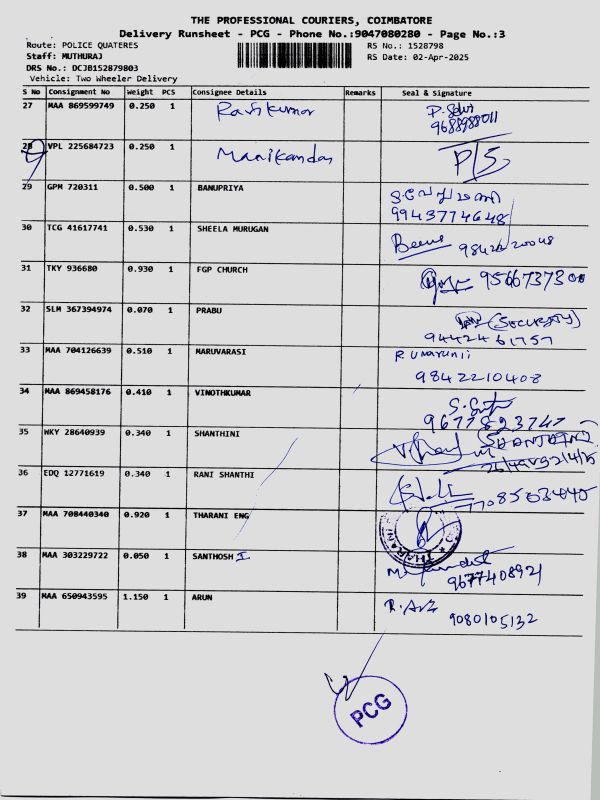 THE PROFESSIONAL COURIERS, COIMBATORE
Delivery Runsheet - PCG - Phone No.:9047080280 - Page No.:3
Route: POLICE QUATERES
RS No.: 1528798
Staff: MUTHURAJ
RS Date: 02-Apr-2025
DRS No.: DCJB152879803
Vehicle: Two Wheeler Delivery
S No Consignment No Weight PCS Consignee Details Remarks Seal & Signature
27 MAA 869599749 0.250 1 Ravikumar
28 VPL 225684723 0.250 1 Manikandan P/S
29 GPM 720311 0.500 1 BANUPRIYA
9943774648
30 TCG 41617741 0.530 1 SHEELA MURUGAN
31 TKY 936680 0.930 1 FGP CHURCH
32 SLM 367394974 0.070 1 PRABU (SECURITY)
9442461757
33 MAA 704126639 0.510 1 MARUVARASI
9842210408
34 MAA 869458176 0.410 1 VINOTHKUMAR
9677823747
35 WKY 28640939 0.340 1 SHANTHINI
36 EDQ 12771619 0.340 1 RANI SHANTHI
37 MAA 708440340 0.920 1 THARANI ENG
38 MAA 303229722 0.050 1 SANTHOSH I
39 MAA 650943595 1.150 1 ARUN
9080105132
PCG